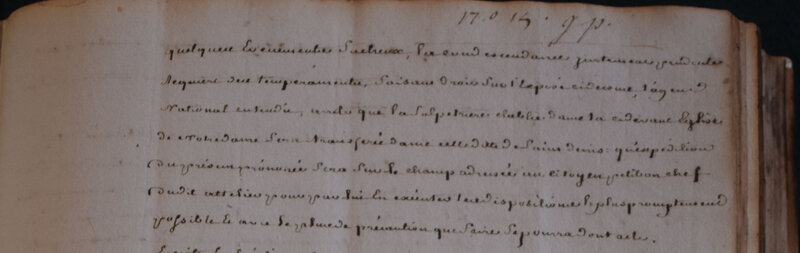 17. 0 14. g p.
quelques Evénements facheux, la condescendance justement prudente
Requiere des temperaments, faisant droit sur l'Exposé cidessus, l'agent
National entendu, arrete que la Salpetriere etablie dans la cidevant Eglise
de Notredame Sera transferée dans celle dite de Saint denis: qu'expedition
du présent prononcé Sera Sur le champ adressée au Citoyen petition chef
dudit attelier pour par lui En exécuter les dispositions le plus promptement
possible Et avec le plus de précaution que faire Se pourra dont acte.